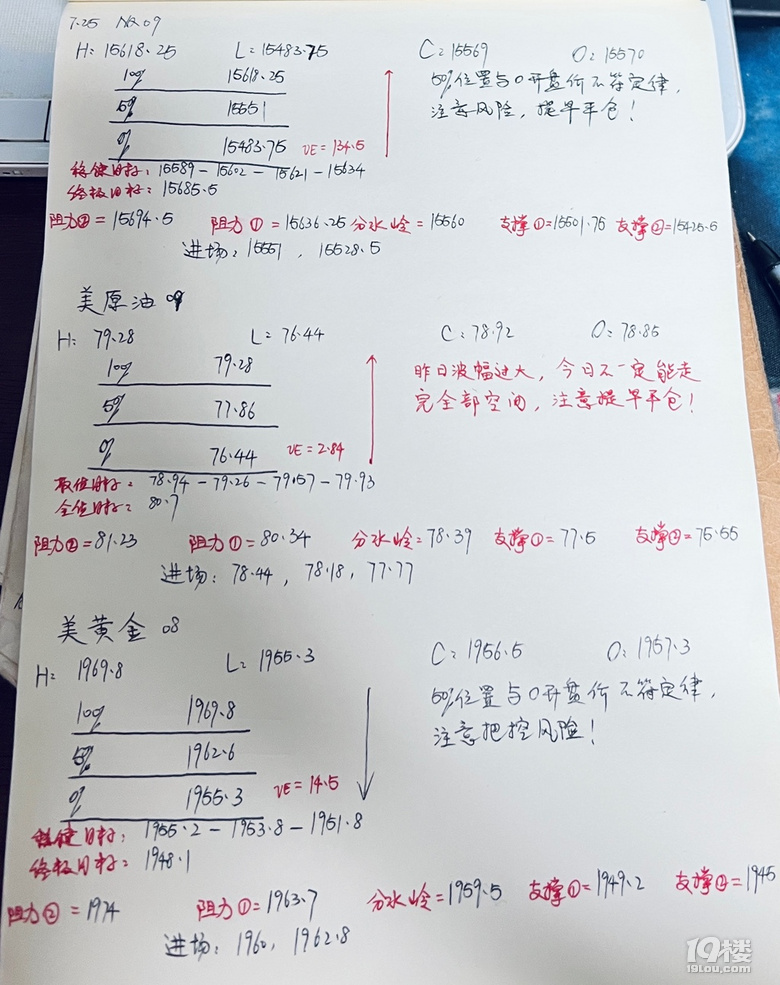 7.25 NQ 09
H: 15618.25 L: 15483.75 C: 15569 O: 15570
100% 15618.25
50% 15551
0% 15483.75 VE=134.5
50%位置与O开盘价不符定律,
注意风险,提早平仓!
稳健目标: 15589-15602-15621-15634
终极目标: 15685.5
阻力②=15694.5 阻力①=15636.25 分水岭=15560 支撑①=15501.75 支撑②=15425.5
进场: 15551, 15528.5
美原油 09
H: 79.28 L: 76.44 C: 78.92 O: 78.85
100% 79.28
50% 77.86
0% 76.44 VE=2.84
昨日波幅过大,今日不一定能走
完全部空间,注意提早平仓!
取值目标: 78.94-79.26-79.57-79.93
全值目标: 80.7
阻力②=81.23 阻力①=80.34 分水岭=78.39 支撑①=77.5 支撑②=75.55
进场: 78.44, 78.18, 77.77
美黄金 08
H: 1969.8 L: 1955.3 C: 1956.5 O: 1957.3
100% 1969.8
50% 1962.6
0% 1955.3 VE=14.5
50%位置与O开盘价不符定律,
注意把控风险!
稳健目标: 1955.2-1953.8-1951.8
终极目标: 1948.1
阻力②=1974 阻力①=1963.7 分水岭=1959.5 支撑①=1949.2 支撑②=1945
进场: 1960, 1962.8
19楼
19lou.com